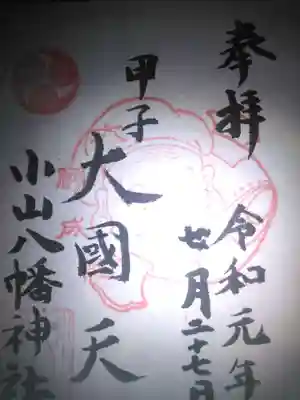 奉拝
令和元年
七月二十七日
甲子
大國天
小山八幡神社